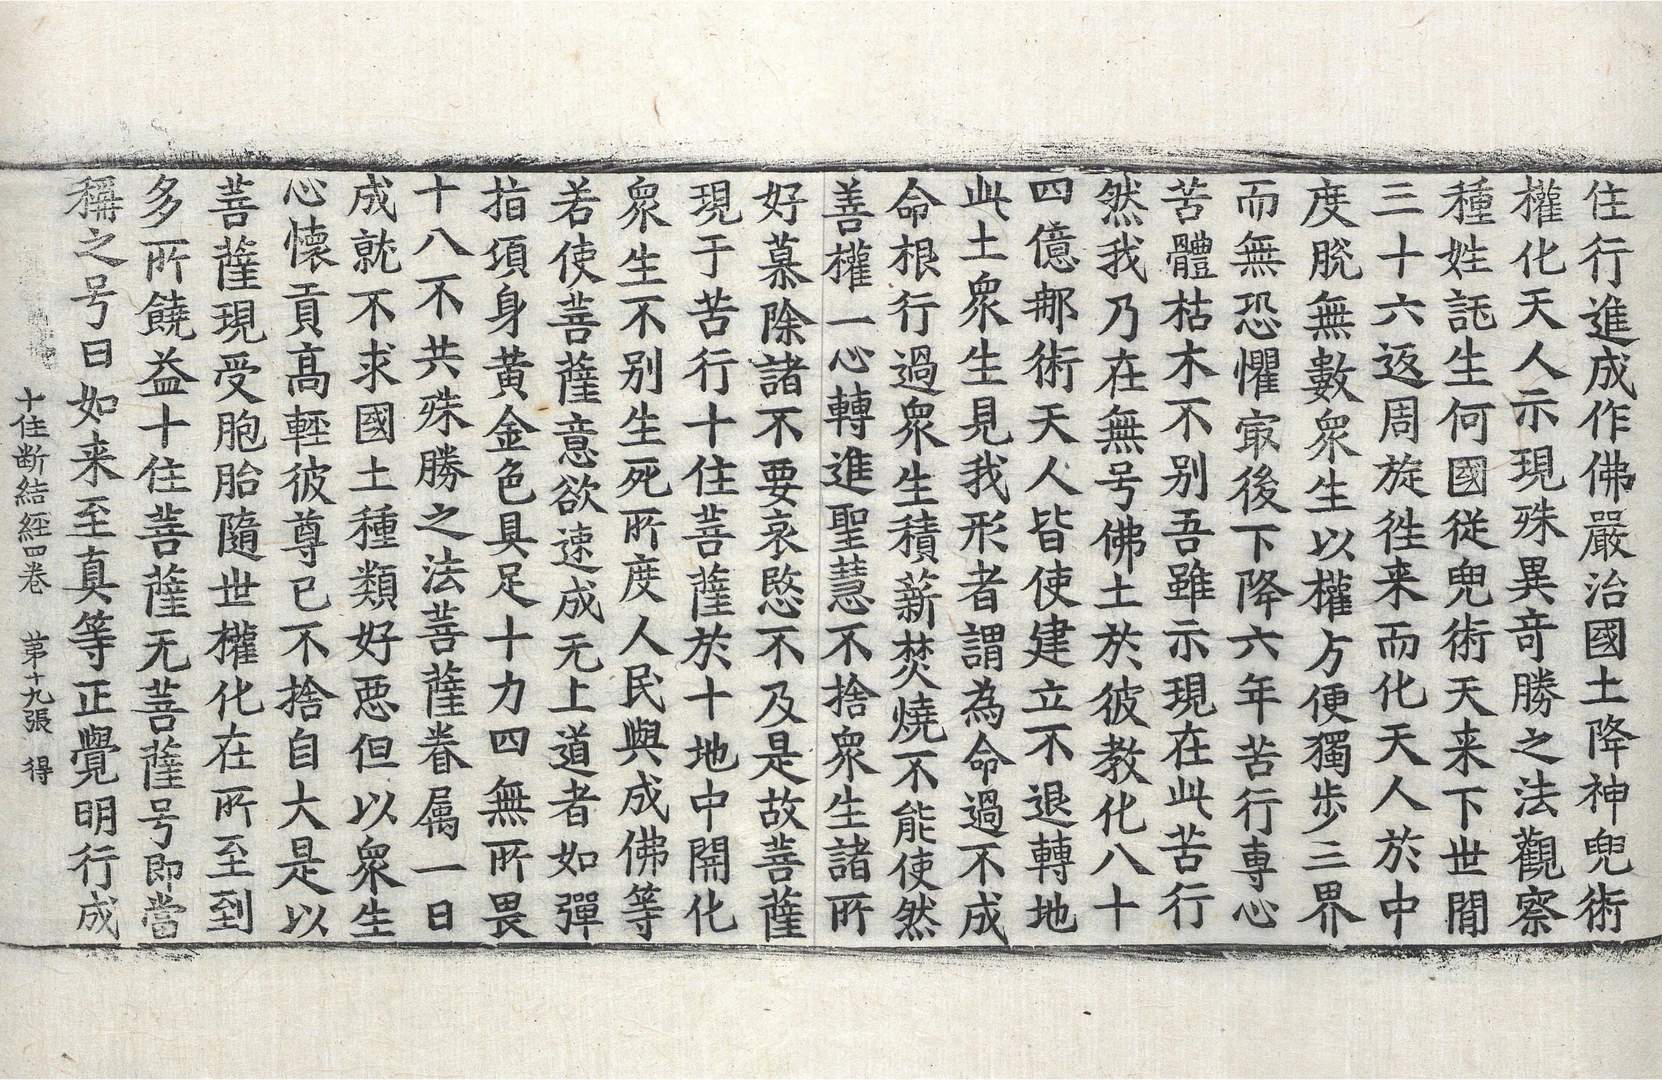 住行進成作佛嚴治國土降神兜術
權化天人示現殊異竒勝之法觀察
種姓託生何國從兜術天来下世閒
三十六返周旋徃来而化天人於中
度脫無數衆生以權方便獨步三界
而無恐懼㝡後下降六年苦行専心
苦體枯木不别吾雖示現在此苦行
然我乃在無号佛土於彼教化八十
四億郍術天人皆使建立不退轉地
此土衆生見我形者謂為命過不成
命根行過衆生積薪焚燒不能使然
善權一心轉進聖慧不捨衆生諸所
好慕除諸不要哀愍不及是故菩薩
現于苦行十住菩薩於十地中開化
衆生不别生死所度人民與成佛等
若使菩薩意欲速成无上道者如彈
指頃身黄金色具足十力四無所畏
十八不共殊勝之法菩薩眷屬一日
成就不求國土種類好惡但以衆生
心懷貢髙輕彼尊已不捨自大是以
菩薩現受胞胎隨世權化在所至到
多所饒益十住菩薩无菩薩号即當
稱之号曰如来至真等正覺明行成
十住断結經四卷　苐十九張　得